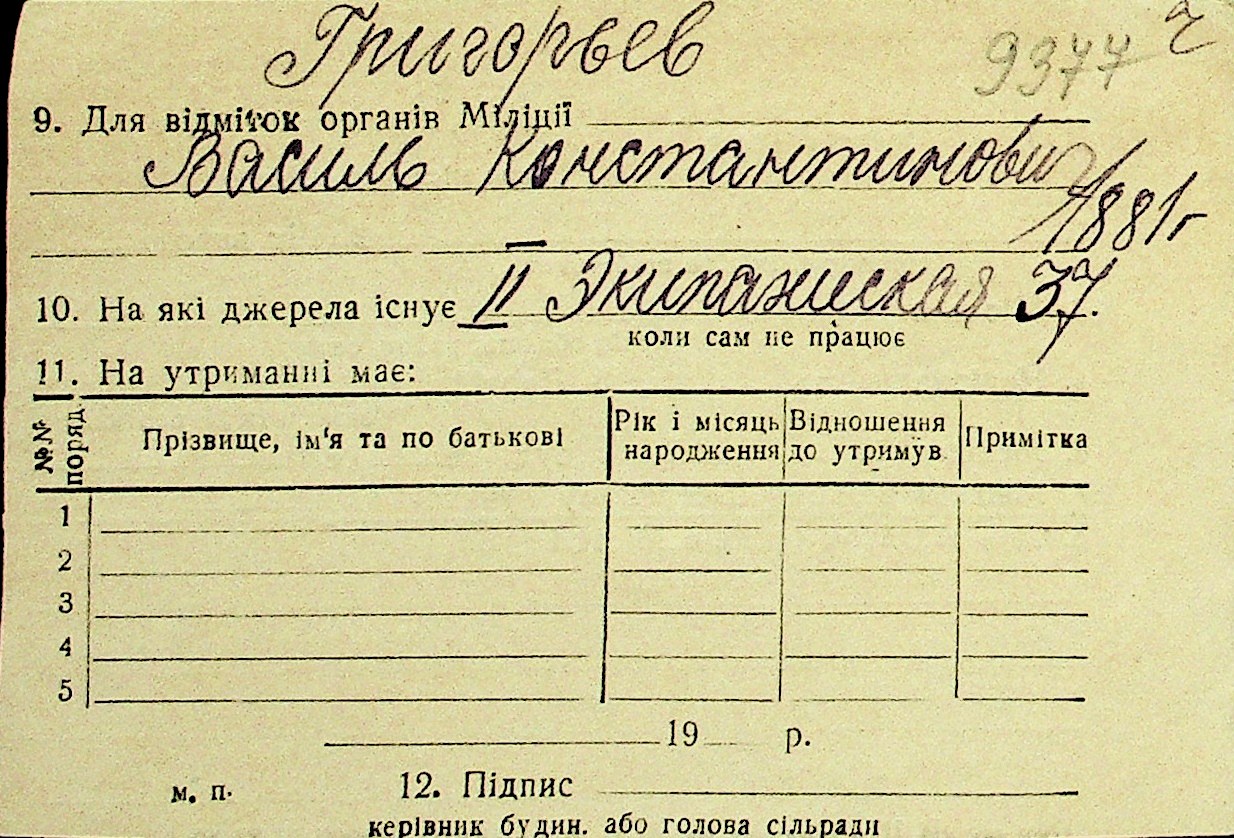 Григорьев 9377 г
9. Для відміток органів Міліції
Василь Константинович
1881г
10. На які джерела існує II Экипажиская 37.
коли сам не працює
11. На утриманні має:
№№ поряд. Прізвище, ім'я та по батькові Рік і місяць народження Відношення до утримув. Примітка
1
2
3
4
5
19 р.
м. п. 12. Підпис
керівник будин. або голова сільради